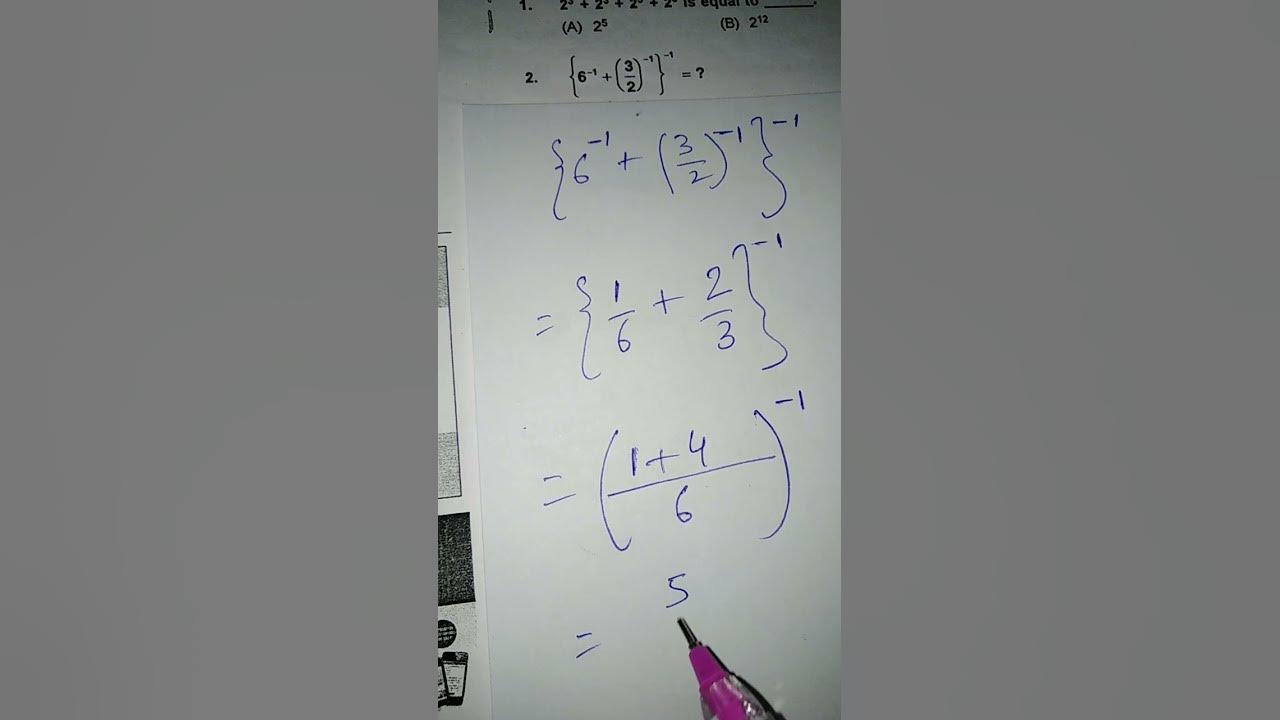 1. 2³ + 2³ + 2³ + 2³ is equal to ______.
(A) 2⁵ (B) 2¹²
2. {6⁻¹ + (3/2)⁻¹}⁻¹ = ?
{6⁻¹ + (3/2)⁻¹}⁻¹
= {1/6 + 2/3}⁻¹
= ((1+4)/6)⁻¹
= 5